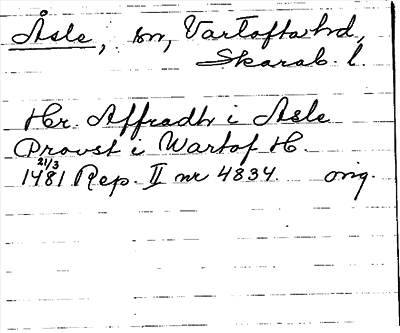 Åsle, sn, Vartofta hd,
Skarab. l.
Hr. Affradh i Asle
Provst i Wartof H.
21/3
1481 Rep. II nr 4834. orig.